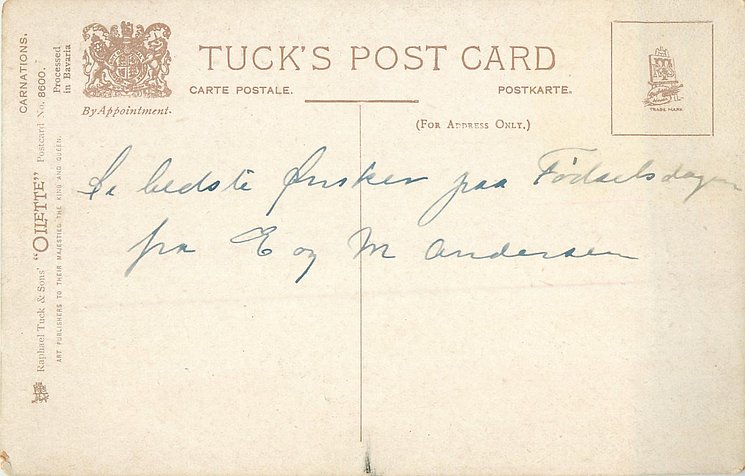 TUCK'S POST CARD
CARTE POSTALE.
POSTKARTE.
(FOR ADDRESS ONLY.)
By Appointment.
TRADE MARK
CARNATIONS.
Processed in Bavaria
Raphael Tuck & Sons' "OILETTE" Postcard No. 8600.
ART PUBLISHERS TO THEIR MAJESTIES THE KING AND QUEEN.
De bedste Ønsker paa Fødselsdagen
fra E og M Andersen